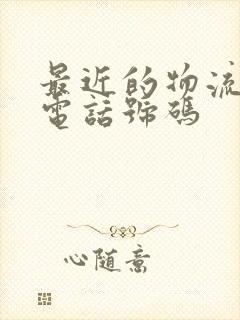 最近的物流
電話號碼
心随意